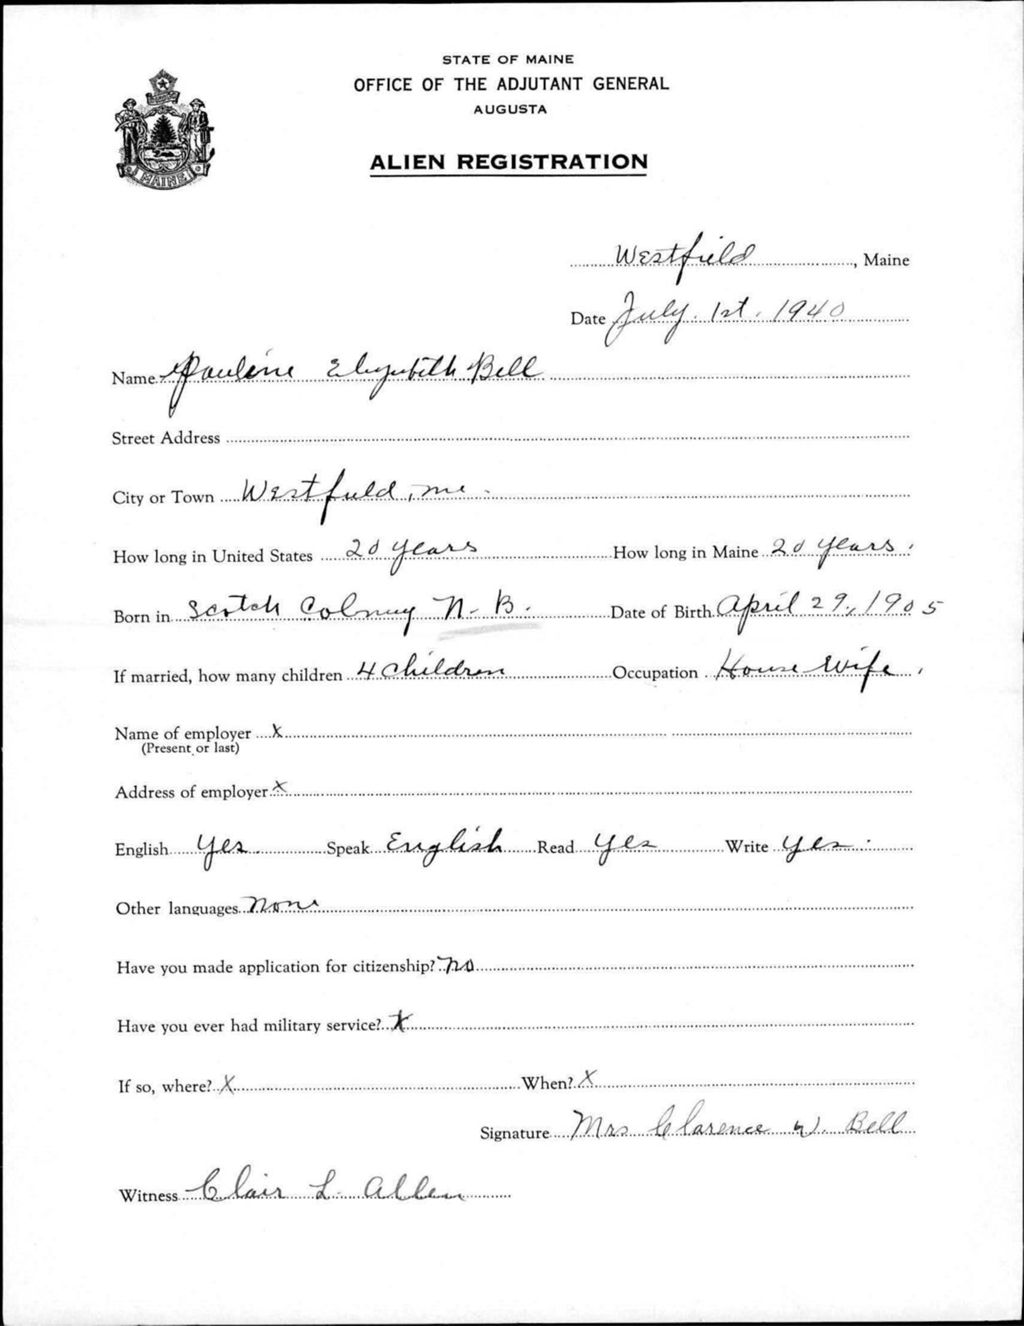 STATE OF MAINE
OFFICE OF THE ADJUTANT GENERAL
AUGUSTA
ALIEN REGISTRATION
MAINE
Westfield, Maine
Date July. 1st. 1940
Name Pauline Elizabeth Bell
Street Address
City or Town Westfield, Me.
How long in United States 20 years How long in Maine 20 years.
Born in Scotch Colony N. B. Date of Birth April 29, 1905
If married, how many children 4 children Occupation House Wife.
Name of employer X
(Present or last)
Address of employer X
English Yes. Speak English Read Yes Write Yes.
Other languages None
Have you made application for citizenship? No
Have you ever had military service? X
If so, where? X When? X
Signature Mrs Clarence W. Bell
Witness Clair L. Allen